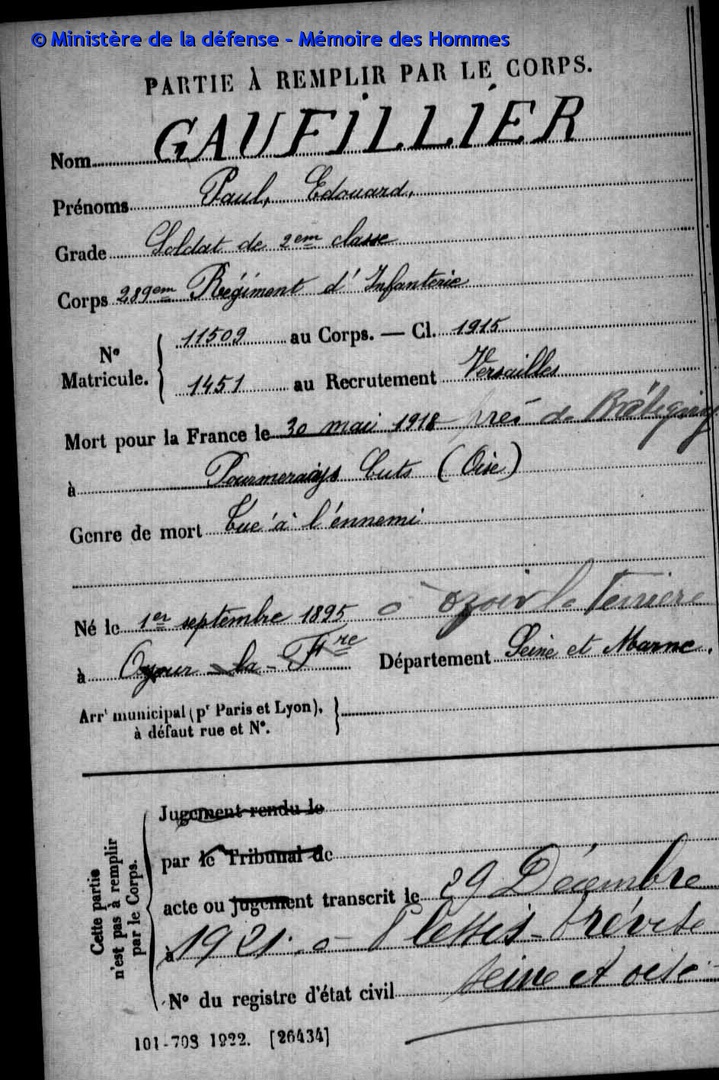 © Ministère de la défense - Mémoire des Hommes
PARTIE À REMPLIR PAR LE CORPS.
Nom GAUFILLIER
Prénoms Paul, Edouard,
Grade Soldat de 2em classe
Corps 289em Régiment d'Infanterie
N° Matricule. 11509 au Corps. — Cl. 1915
1451 au Recrutement Versailles
Mort pour la France le 30 mai 1918 près de
à Cuts (Oise)
Genre de mort Tué à l'ennemi
Né le 1er septembre 1895 à ozoir la ferrière
à la Fre Département Seine et Marne.
Arrt municipal (pr Paris et Lyon),
à défaut rue et N°.
Cette partie n'est pas à remplir par le Corps.
Jugement rendu le
par le Tribunal de
acte ou jugement transcrit le 29 Décembre
à 1921 à Plessis-Trévise
Seine et oise
N° du registre d'état civil
101-708 1922. [26434]